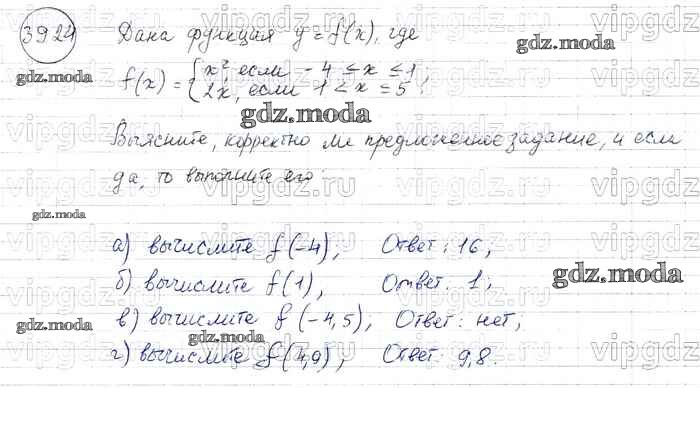 39.24 Дана функция y = f(x), где
f(x) = { x², если -4 ≤ x ≤ 1;
2x, если 1 < x ≤ 5
Выясните, корректно ли предложенное задание, и если
да, то выполните его:
а) вычислите f(-4), Ответ: 16;
б) вычислите f(1), Ответ: 1;
в) вычислите f(-4,5), Ответ: нет;
г) вычислите f(4,9), Ответ: 9,8.
gdz.moda
gdz.moda
gdz.moda
gdz.moda
gdz.moda
gdz.moda
gdz.moda
gdz.moda
vipgdz.ru